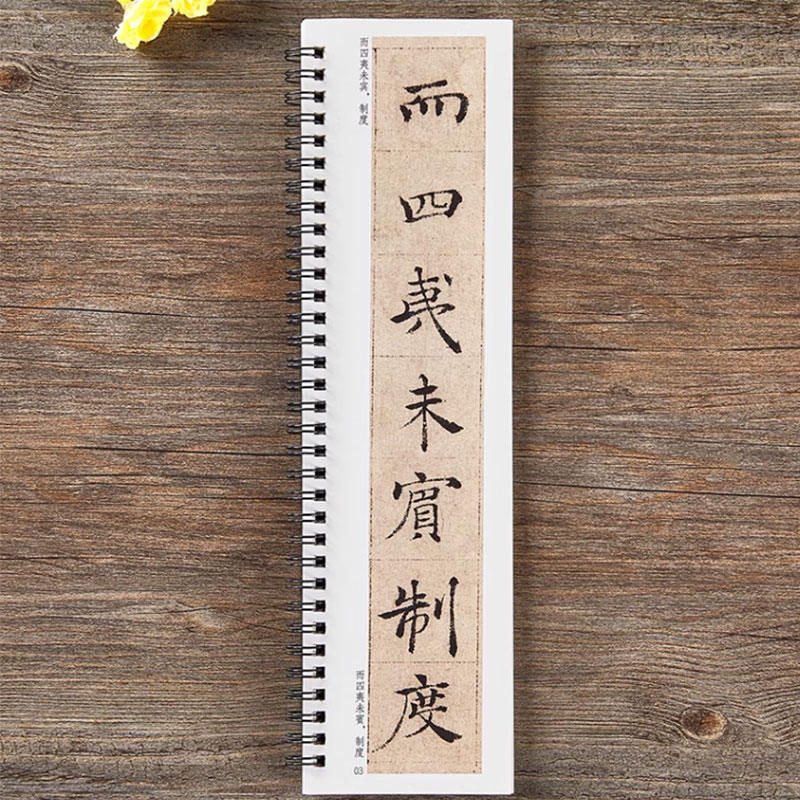 而四夷未賓制度
而四夷未宾，制度
而四夷未賓，制度
03